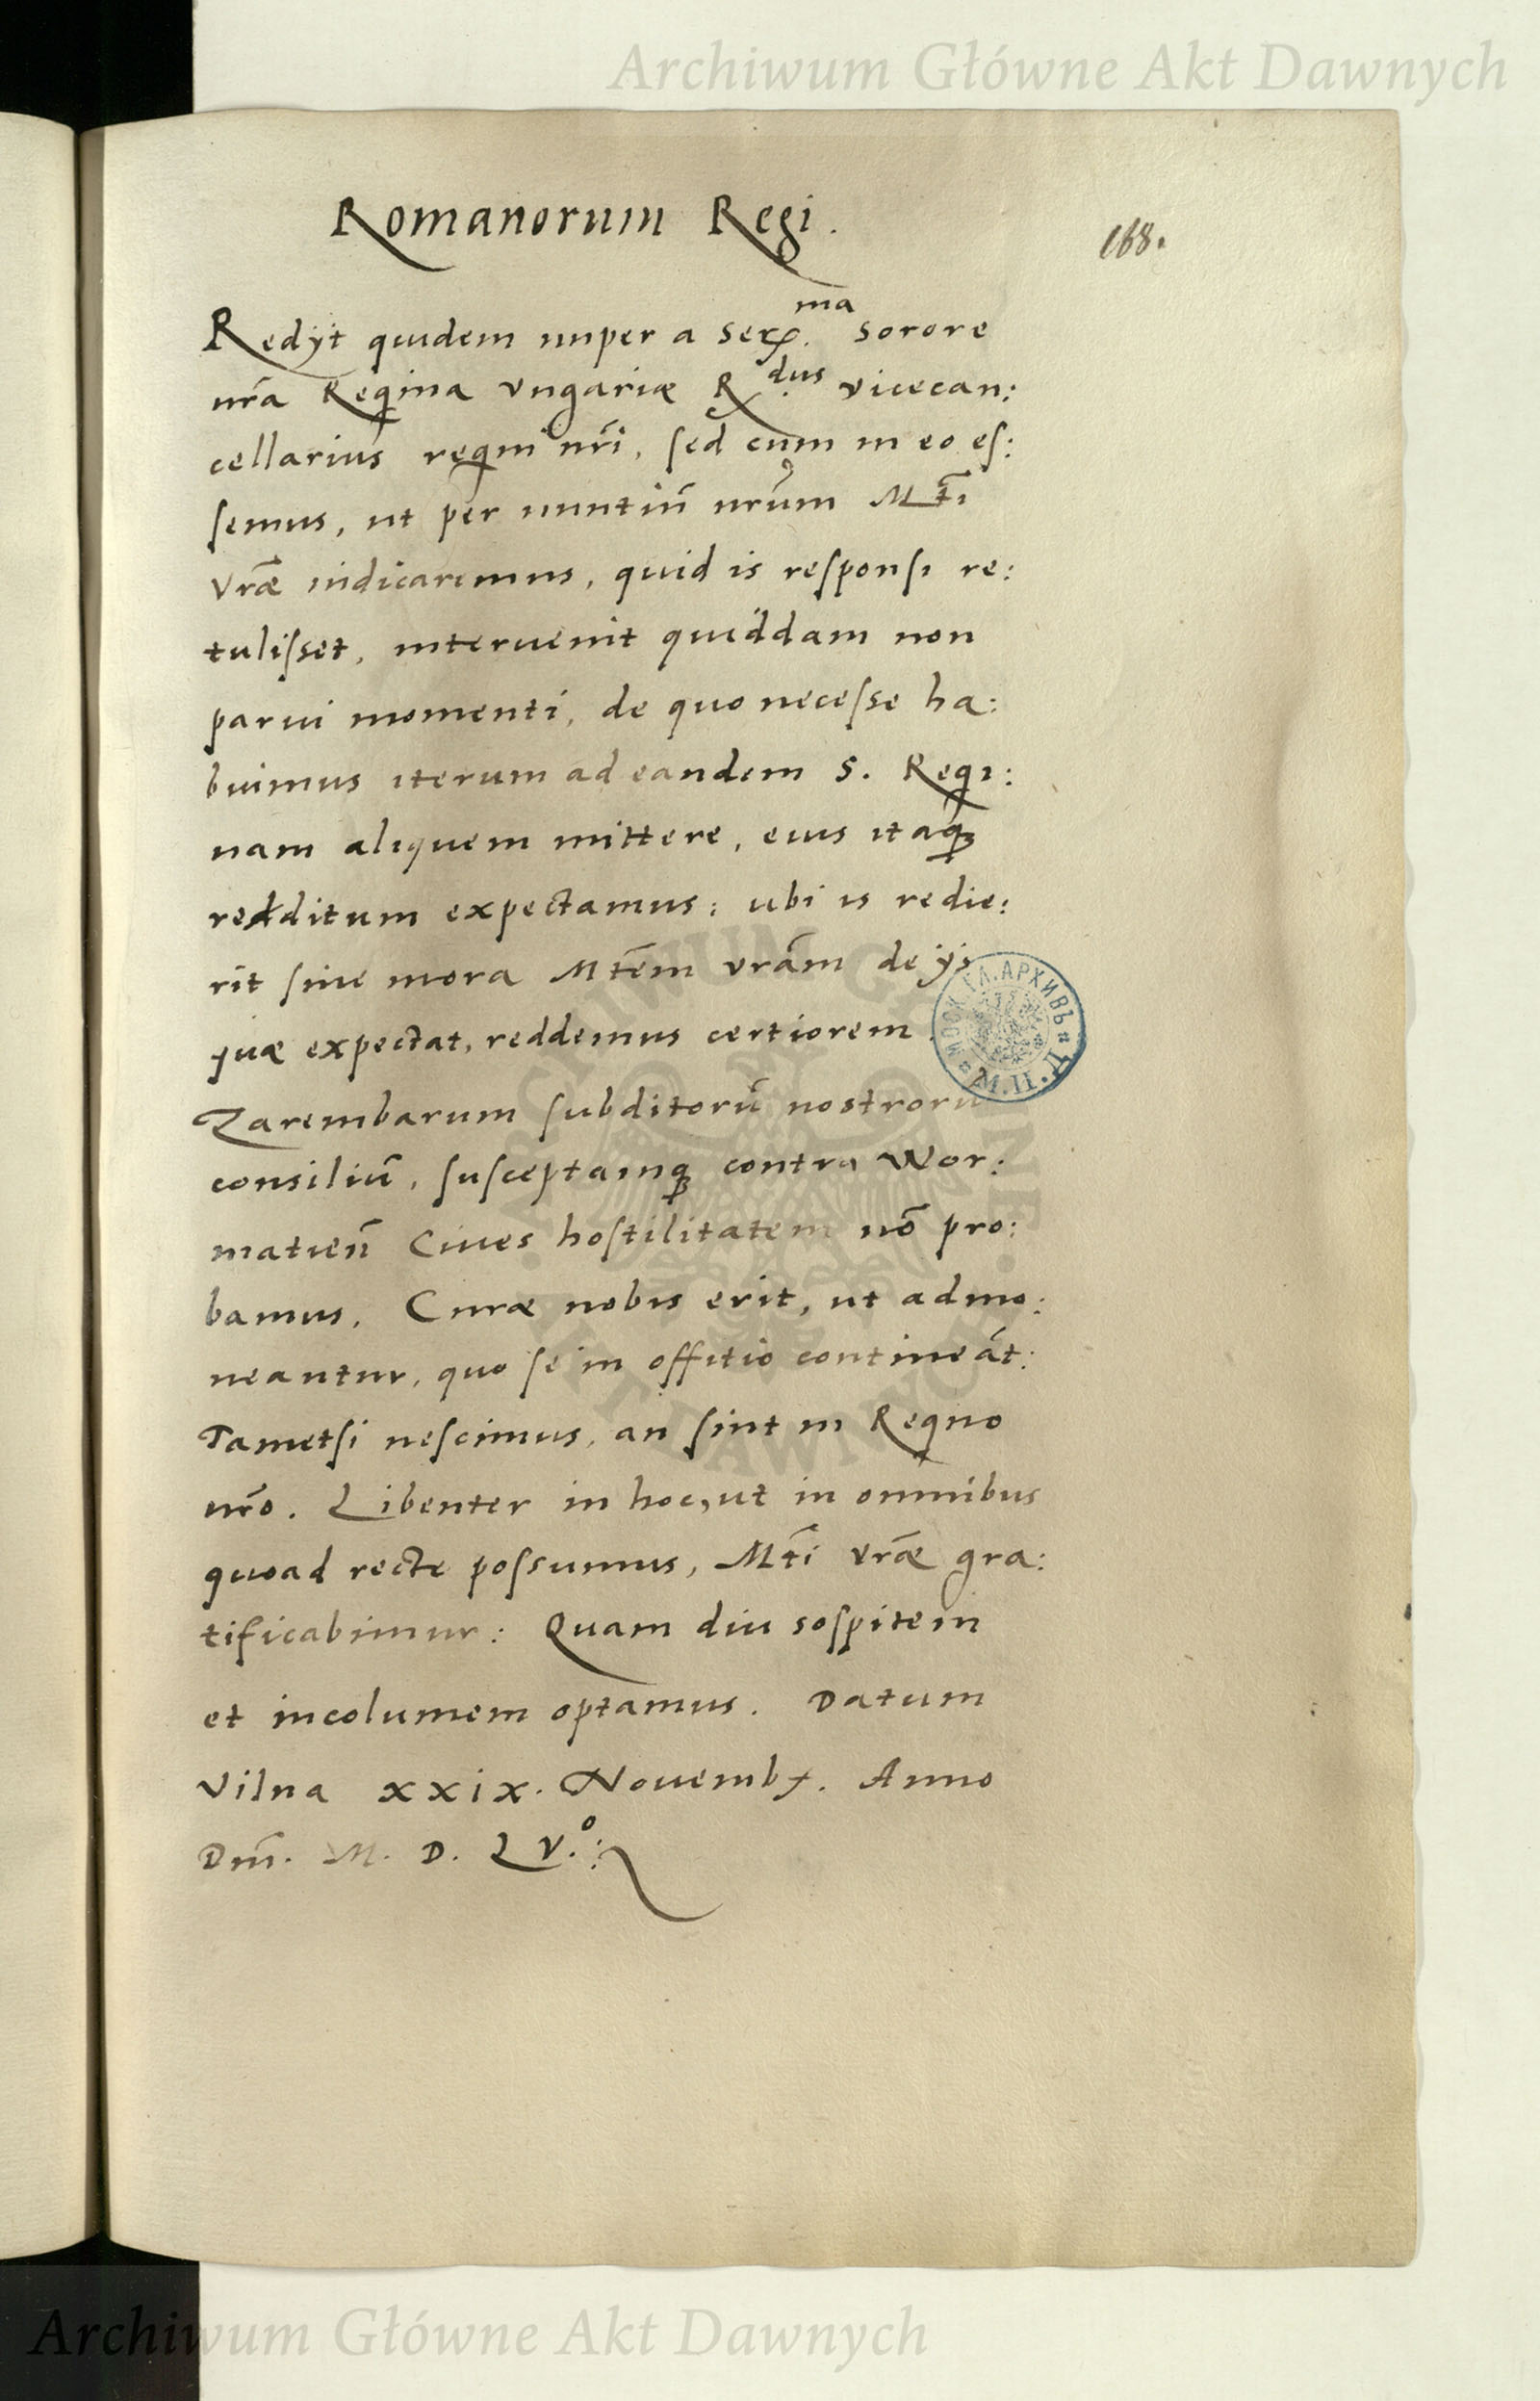 Archiwum Główne Akt Dawnych
Romanorum Regi.
168.
Redijt quidem nuper a Ser.ma sorore
nr̃a Regina Vngariæ R.dus vicecan:
cellarius regni nr̃i, sed cum in eo es:
semus, ut per nuntiũ nr̃um Mt̃i
Vr̃æ indicaremus, quid is responsi re:
tulisset, interuenit quiddam non
parui momenti, de quo necesse ha:
buimus iterum ad eandem S. Regi:
nam aliquem mittere, eius itaqꝫ
redditum expectamus: ubi is redie:
rit sine mora Mt̃em vr̃am de ijs
quæ expectat, reddemus certiorem.
Zarembarum subditorũ nostrorũ
consiliũ, susceptamqꝫ contra Wor:
matieñ Ciues hostilitatem nõ pro:
bamus. Curæ nobis erit, ut admo:
neantur, quo se in offitio contineãt:
Tametsi nescimus, an sint in Regno
nr̃o. Libenter in hoc, ut in omnibus
quoad recte possumus, Mt̃i Vr̃æ gra:
tificabimur: Quam diu sospitem
et incolumem optamus. Datum
Vilna xxix. Nouembr. Anno
Dm̃. M. D. LV.o:
МОСК. ГЛ. АРХИВЪ
М.И.Д.
ARCHIWUM GŁÓWNE AKT DAWNYCH
Archiwum Główne Akt Dawnych